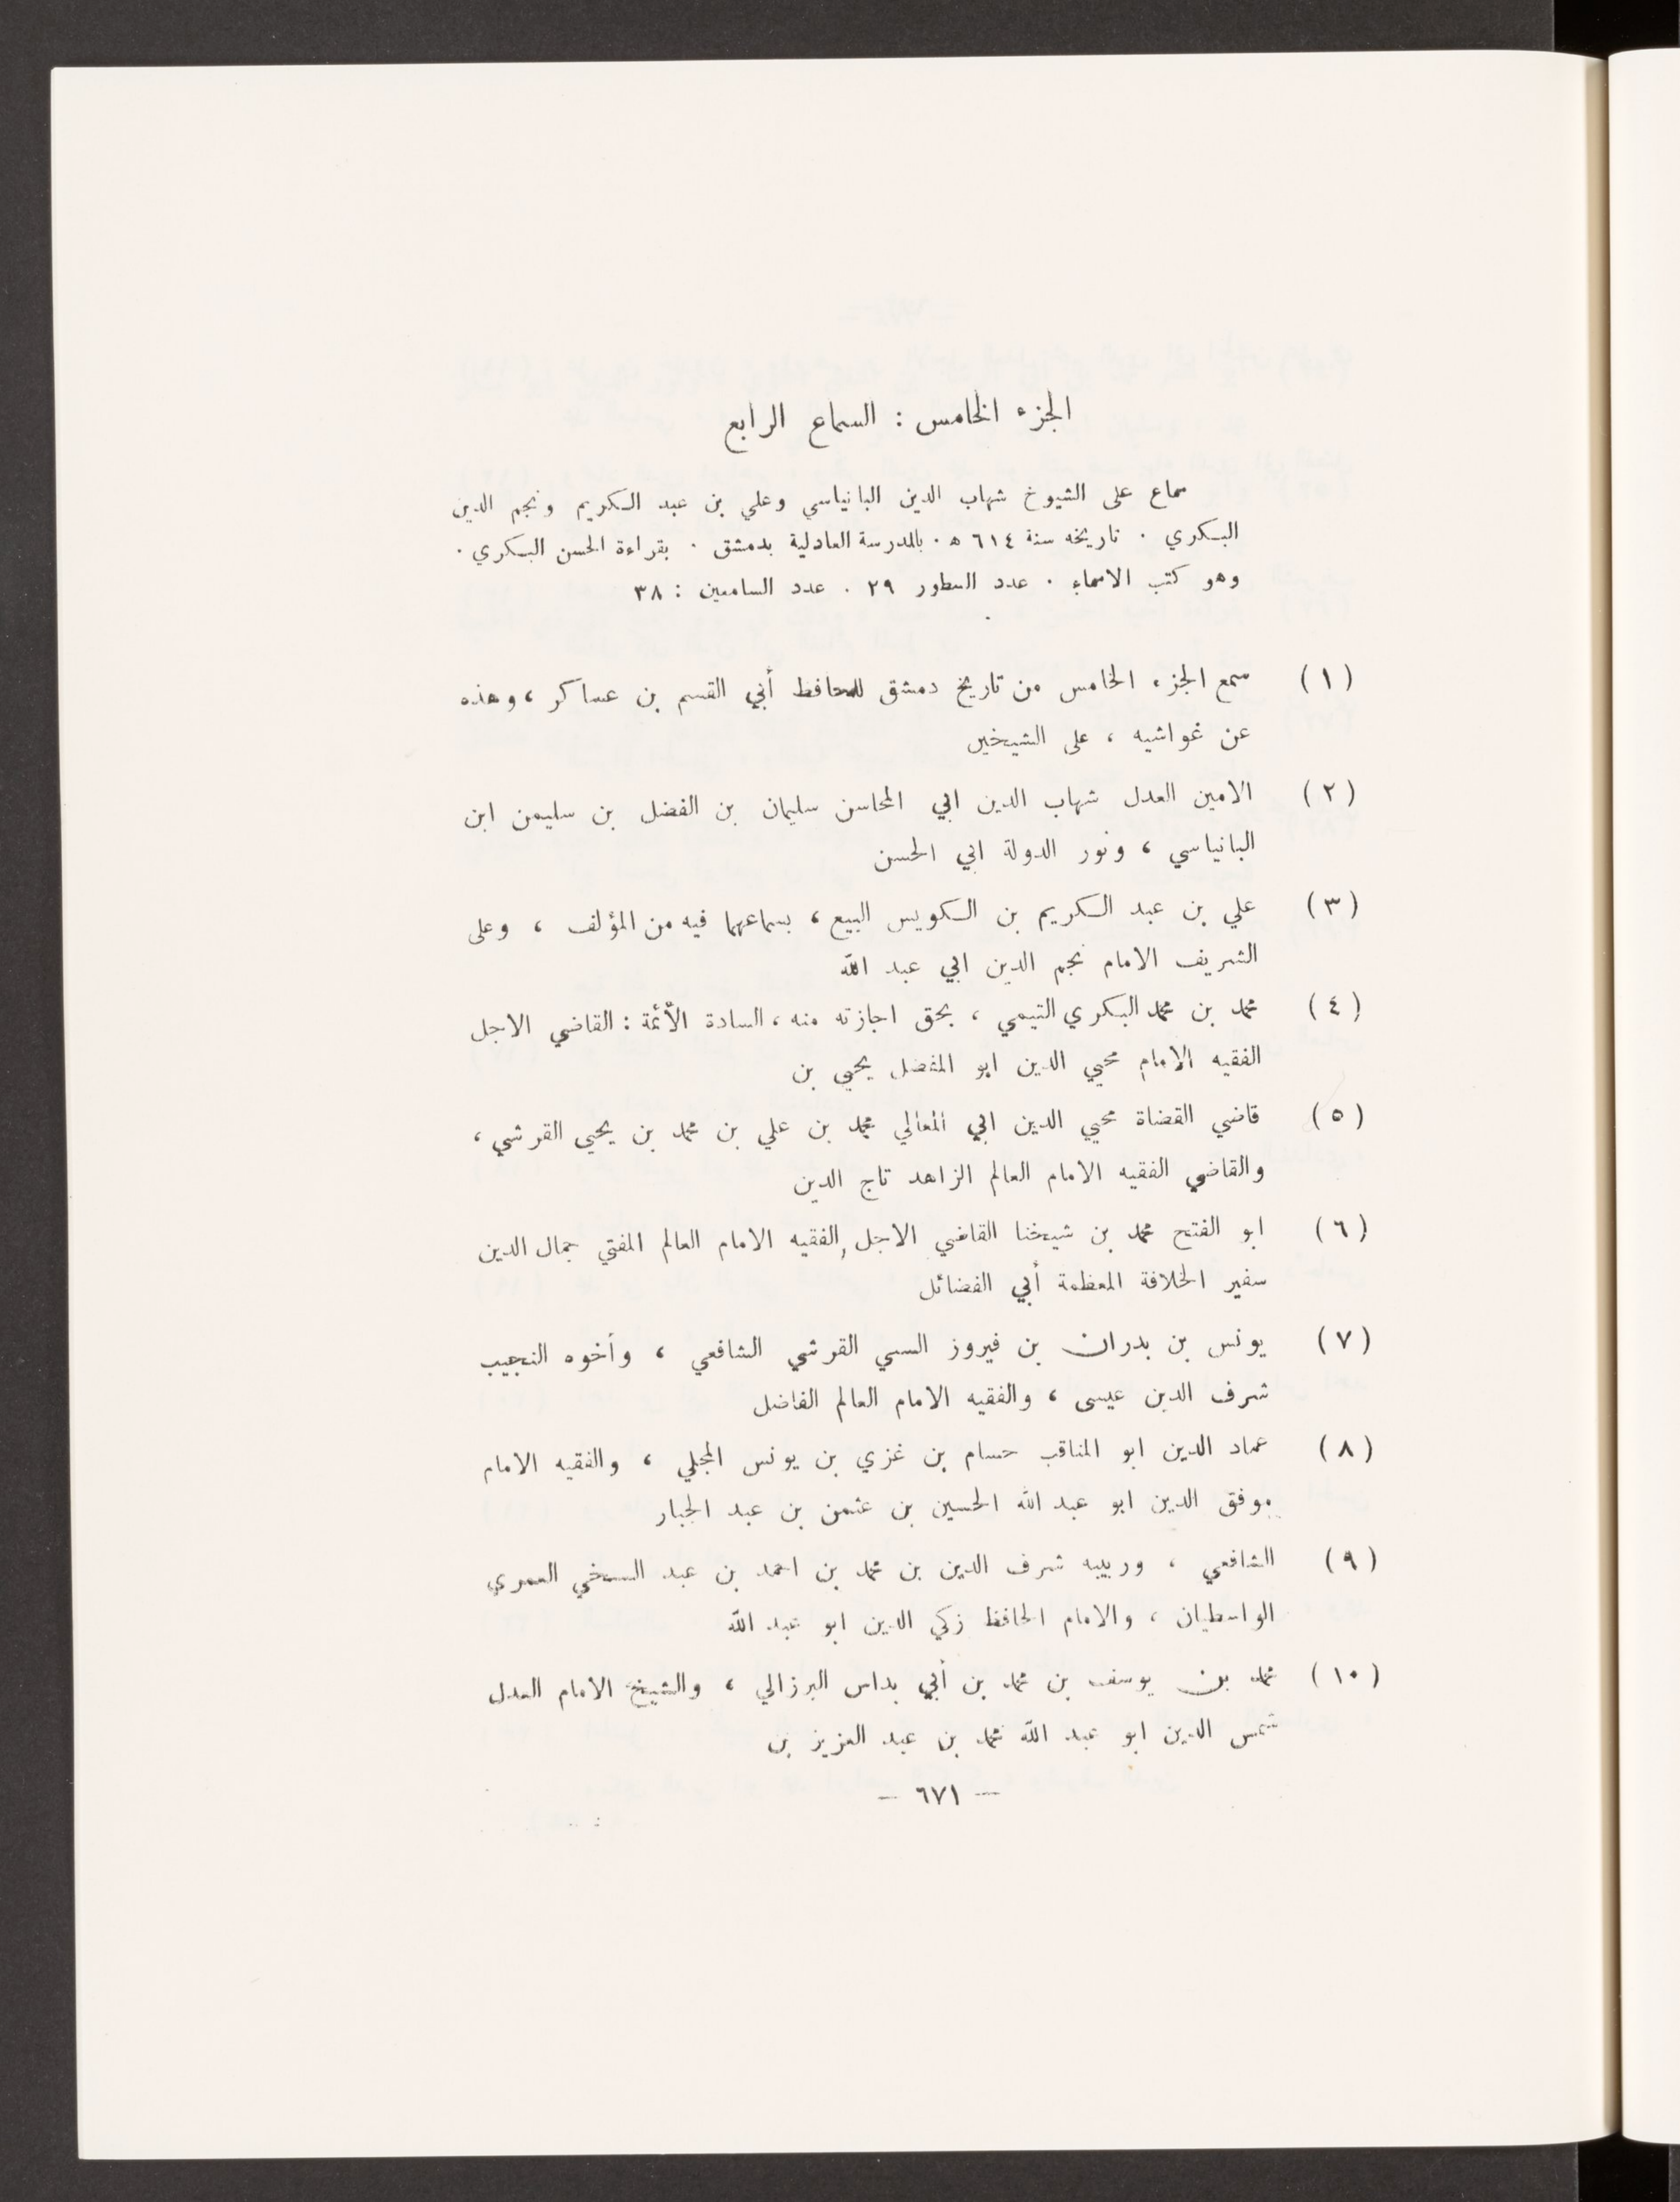 الجزء الخامس : السماع الرابع
سماع على الشيوخ شهاب الدين البانياسي وعلي بن عبد الكريم ونجم الدين
البكري . تاريخه سنة ٦١٤ ه . بالمدرسة العادلية بدمشق . بقراءة الحسن البكري .
وهو كتب الاسماء . عدد السطور ٢٩ . عدد السامعين : ٣٨
(١) سمع الجزء الخامس من تاريخ دمشق للحافظ أبي القسم بن عساكر ، وهذه
عن غواشيه ، على الشيخين
(٢) الامين العدل شهاب الدين ابي المحاسن سليمان بن الفضل بن سليمن ابن
البانياسي ، ونور الدولة ابي الحسن
(٣) علي بن عبد الكريم بن الكويس البيع ، بسماعهما فيه من المؤلف ، وعلى
الشريف الامام نجم الدين ابي عبد الله
(٤) محمد بن محمد البكري التيمي ، بحق اجازته منه ، السادة الأئمة : القاضي الاجل
الفقيه الامام محيي الدين ابو المفضل يحيى بن
(٥) قاضي القضاة محيي الدين ابي المعالي محمد بن علي بن محمد بن يحيى القرشي ،
والقاضي الفقيه الامام العالم الزاهد تاج الدين
(٦) ابو الفتح محمد بن شيخنا القاضي الاجل الفقيه الامام العالم المفتي جمال الدين
سفير الخلافة المعظمة أبي الفضائل
(٧) يونس بن بدران بن فيروز السبي القرشي الشافعي ، وأخوه النجيب
شرف الدين عيسى ، والفقيه الامام العالم الفاضل
(٨) عماد الدين ابو المناقب حسام بن غزي بن يونس المجلي ، والفقيه الامام
موفق الدين ابو عبد الله الحسين بن عثمن بن عبد الجبار
(٩) الشافعي ، وربيبه شرف الدين بن محمد بن احمد بن عبد السخي العمري
الواسطيان ، والامام الحافظ زكي الدين ابو عبد الله
(١٠) محمد بن يوسف بن محمد بن أبي بداس البرزالي ، والشيخ الامام العدل
شمس الدين ابو عبد الله محمد بن عبد العزيز بن
— ٦٧١ —